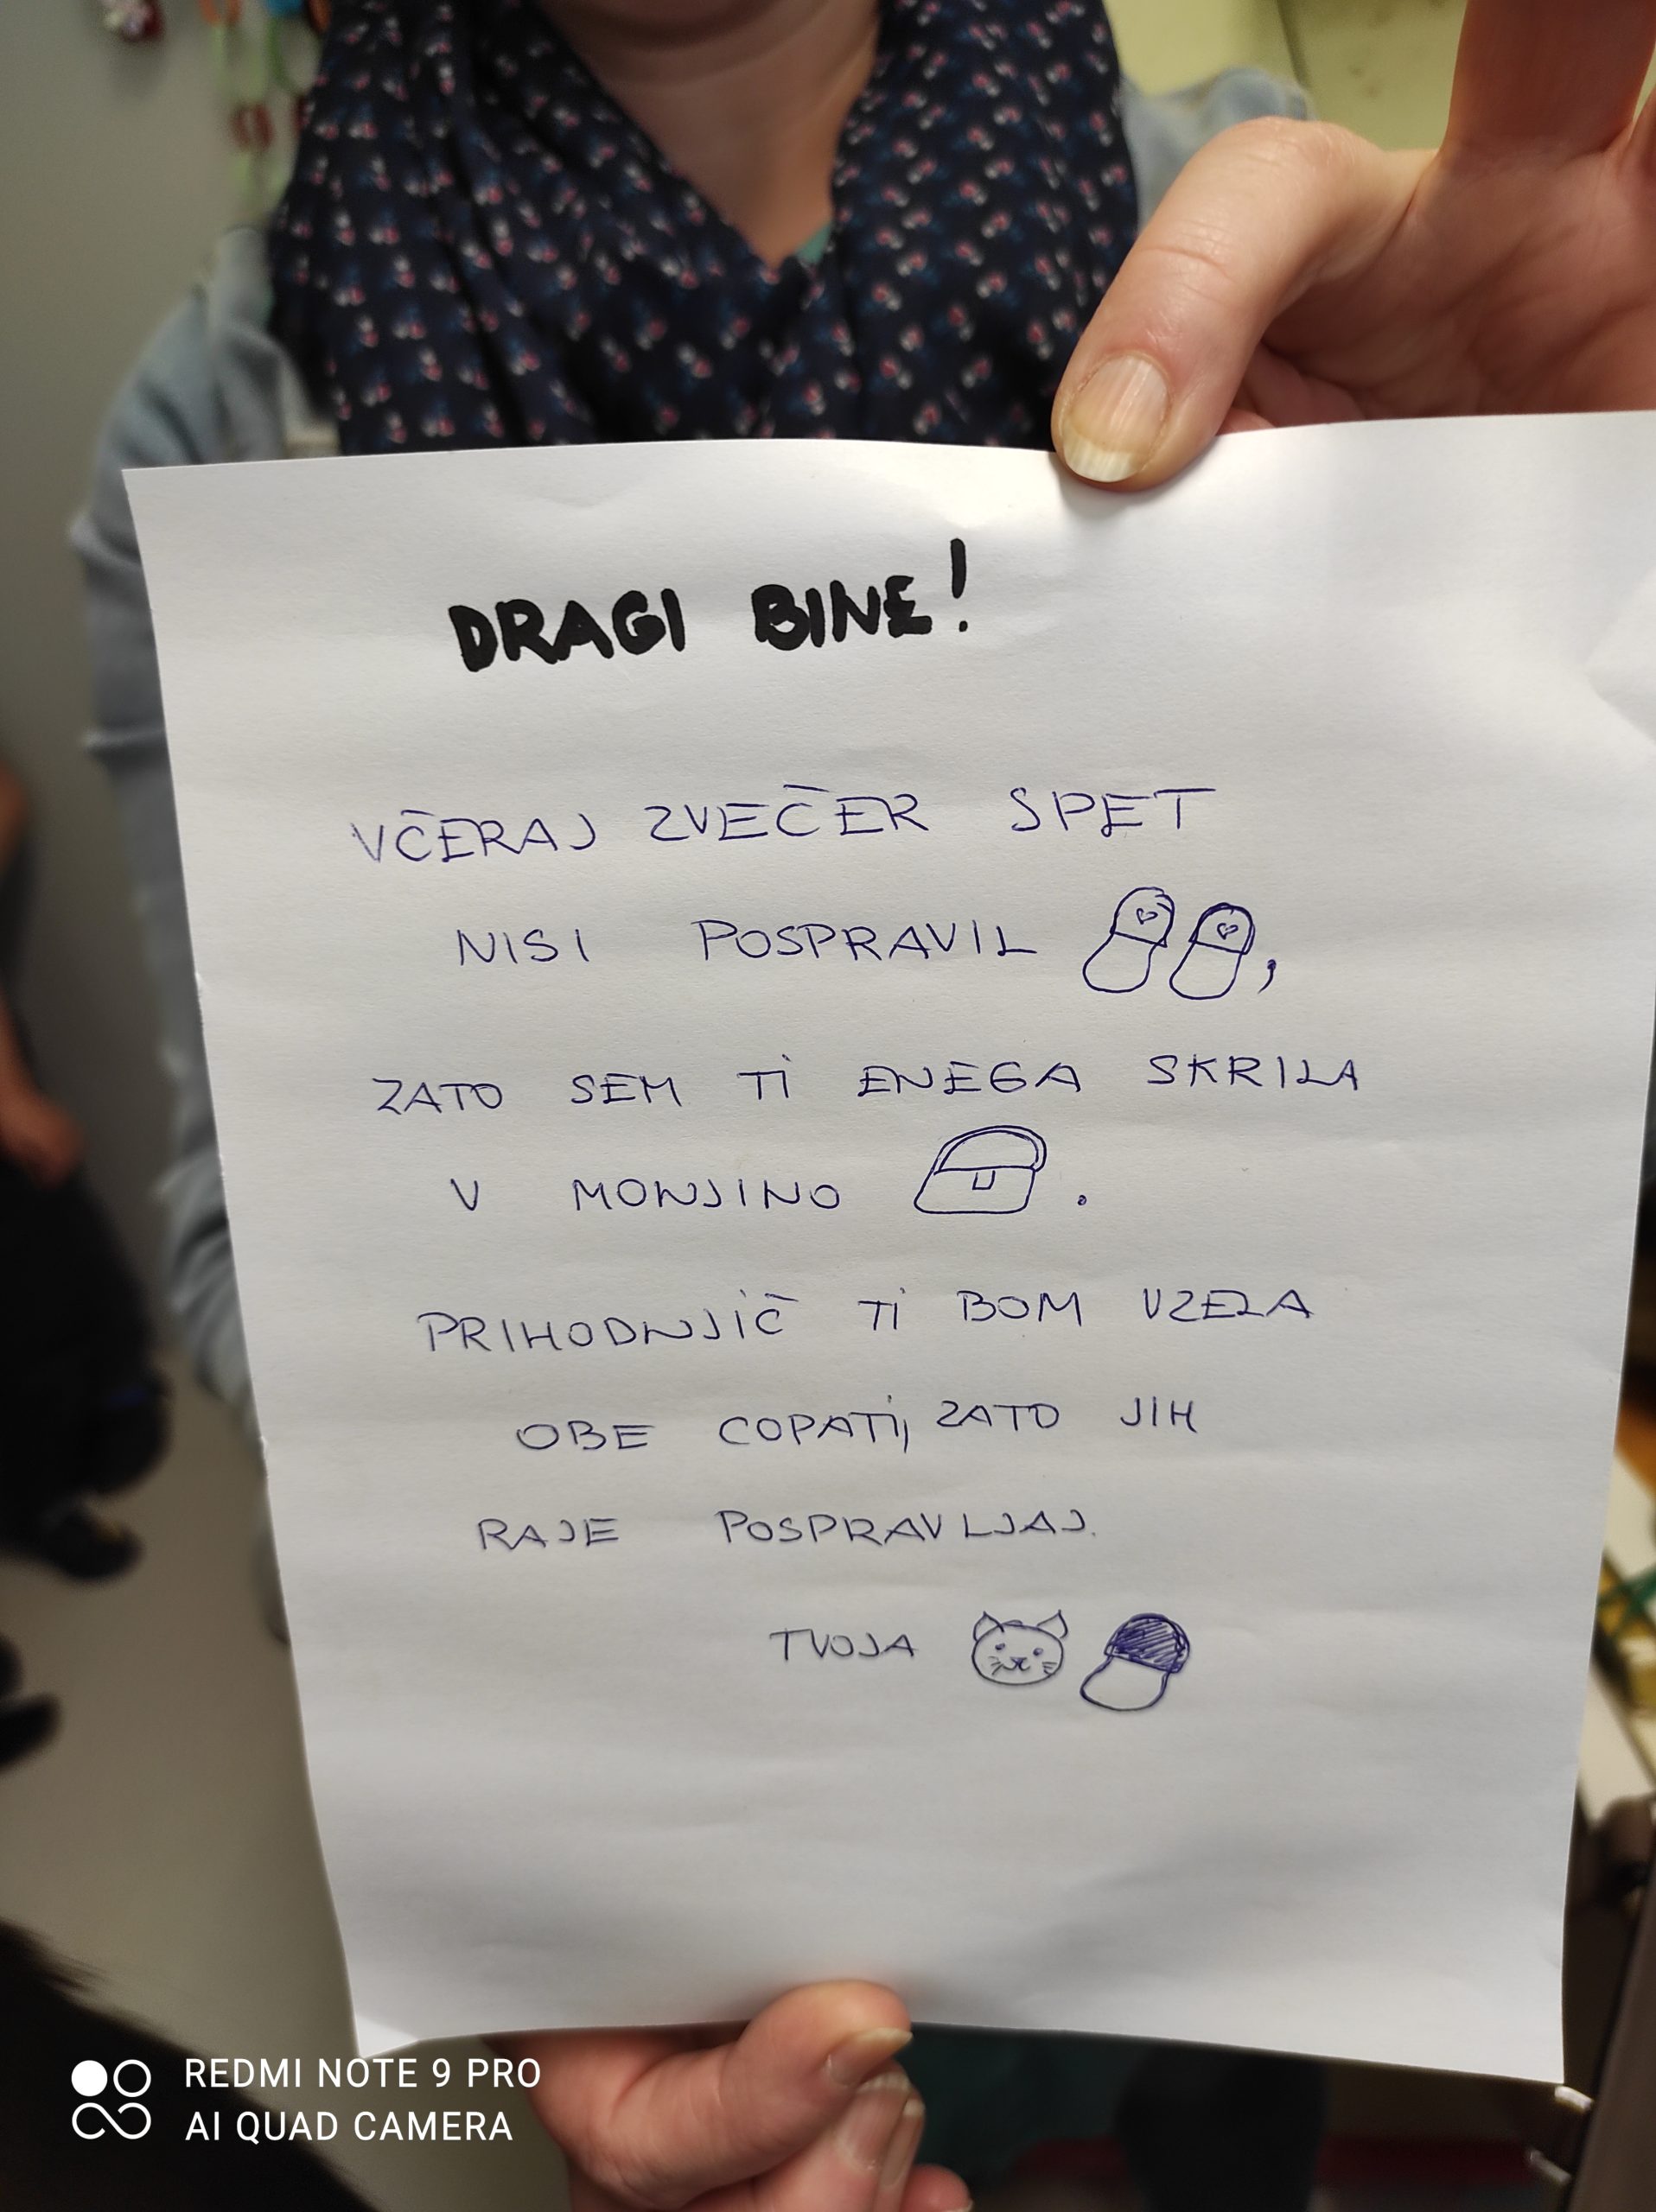 DRAGI BINE!
VČERAJ ZVEČER SPET
NISI POSPRAVIL ,
ZATO SEM TI ENEGA SKRILA
V MONJINO .
PRIHODNJIČ TI BOM VZELA
OBE COPATI, ZATO JIH
RAJE POSPRAVLJAJ.
TVOJA
REDMI NOTE 9 PRO
AI QUAD CAMERA